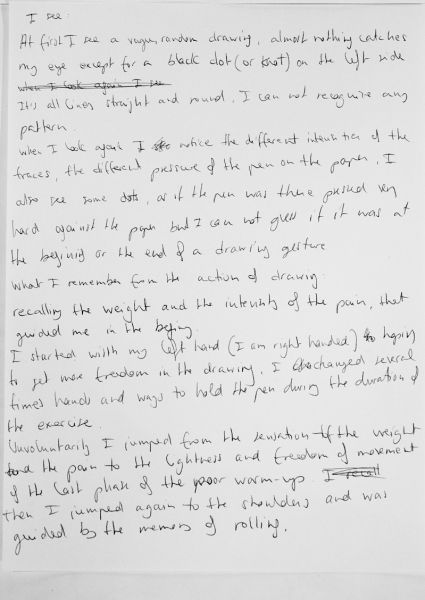 I see:
At first I see a vague, random drawing, almost nothing catches
my eye except for a black dot (or knot) on the left side
when I look again I see
It's all lines straight and round, I can not recognize any
pattern.
when I look again I notice the different intensities of the
traces, the different pressure of the pen on the paper, I
also see some dots, as if the pen was there pressed very
hard against the paper but I can not guess if it was at
the beginnig or the end of a drawing gesture
What I remember from the action of drawing:
recalling the weight and the intensity of the pain, that
guided me in the begining.
I started with my left hand (I am right handed) hoping
to get more freedom in the drawing, I changed several
times hands and ways to hold the pen during the duration of
the exercise.
Unvoluntarily I jumped from the sensation of the weight
and the pain to the lightness and freedom of movement
of the last phase of the floor warm-up. I recall
Then I jumped again to the shoulders and was
guided by the memory of rolling.